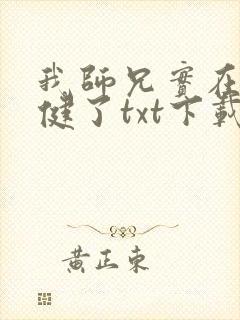 我師兄實在
健了txt下載
黃正東